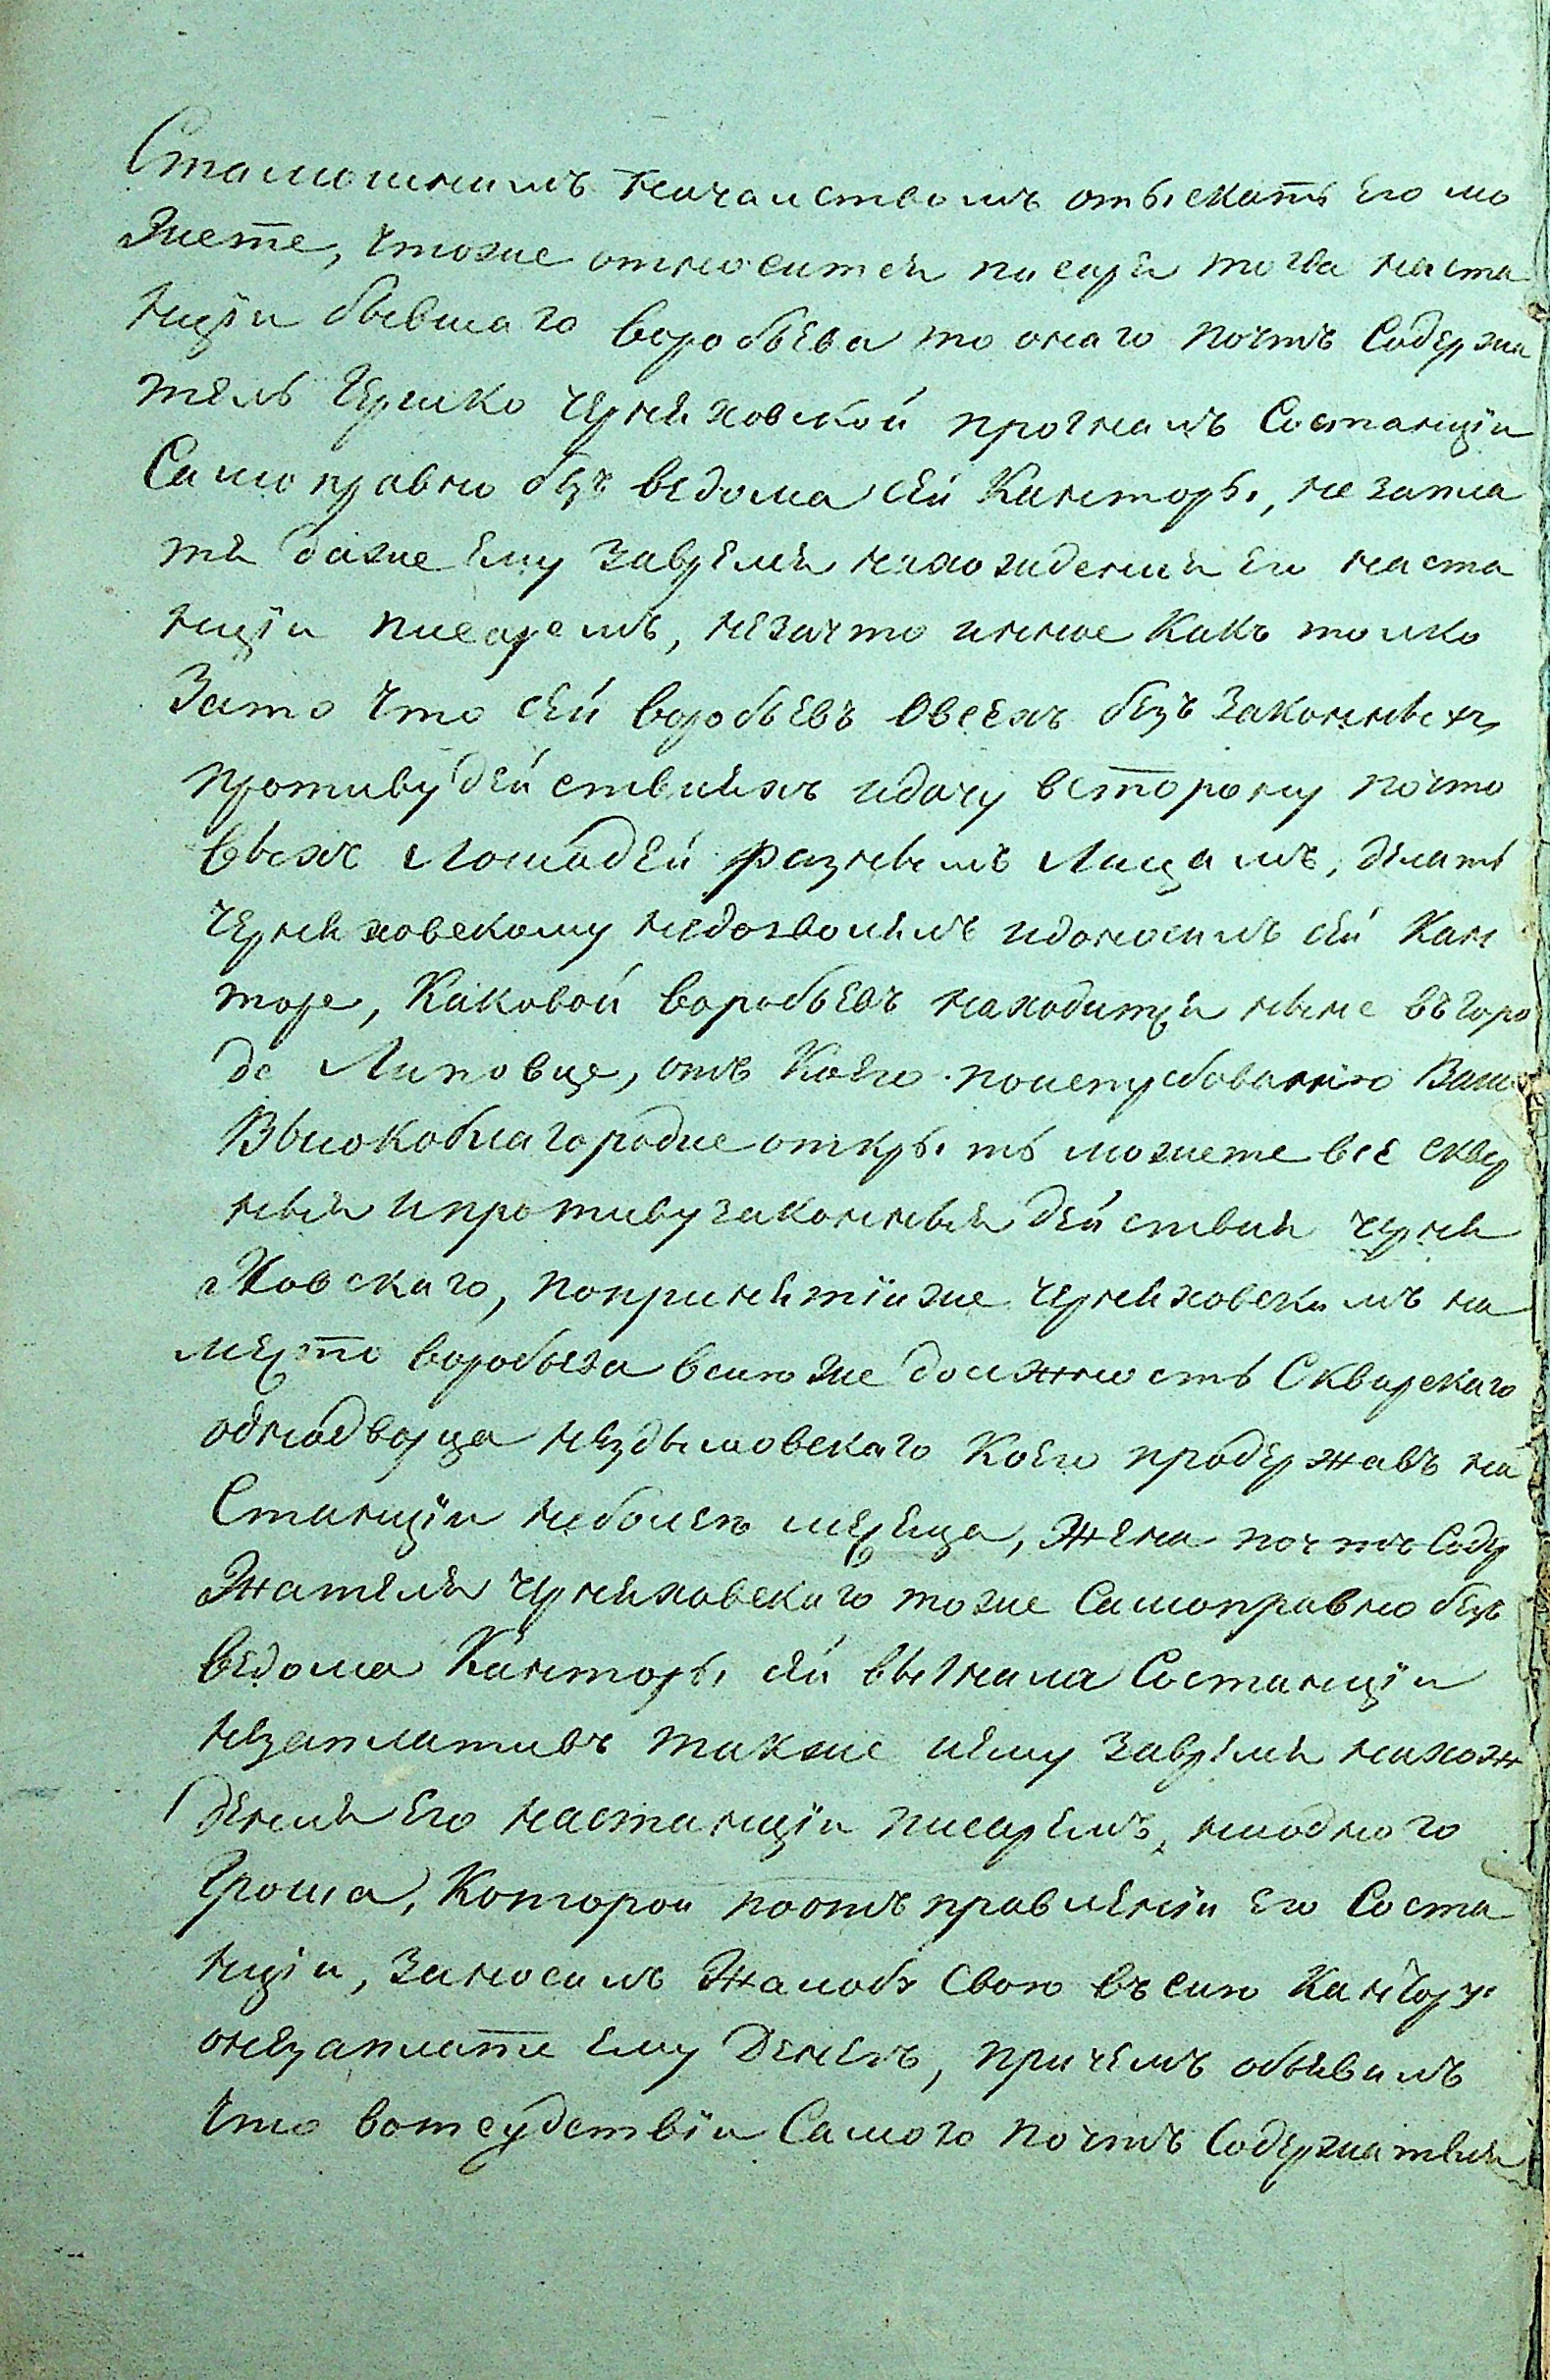 Стамошнимъ начальствомъ отыскать его мо
жете, чтоже относится писаря тогда наста
нціи бывшаго воробьева то онаго почтъ Содержа
тель Гершко черняховской прогналъ Состанціи
Самоправно безъ ведома сей Канторы, не запла
тя даже ему завремя нахождения его наста
нціи писаремъ, незачто инное какъ толко
Зато что сей воробьевъ овсехъ безъ Законныхъ
противудействияхъ идачу встторону почто
выхъ Лошадей разнымъ Лицамъ, делать
черняховскому недозволялъ идоносилъ сей Кан
торе, Каковой воробьевъ находится ныне въ горо
де Липовце, отъ Коего поистребованию Ваше
Высокоблагородие открыть можете все сквер
ныя ипротивузаконныя действия черня
ховскаго, попринятіиже черняховскимъ на
место воробьева всиюже должность Сквирскаго
однодворца нездымовскаго Коего продержавъ на
Станціи неболея месеца, жена почтъ Содер
жателя черняховскаго тоже Самоправно безъ
ведома Канторы сей выгнала Состанціи
незаплативъ также иему завремя нахож
дения его настанціи писаремъ, ниодного
гроша, Которой поотъправленіи его Соста
нціи, заносилъ Жалобу свою въсию Кантору
онезаплате ему Денегъ, причемъ объявилъ
что вотсудствіи Самого почтъ Содержателя